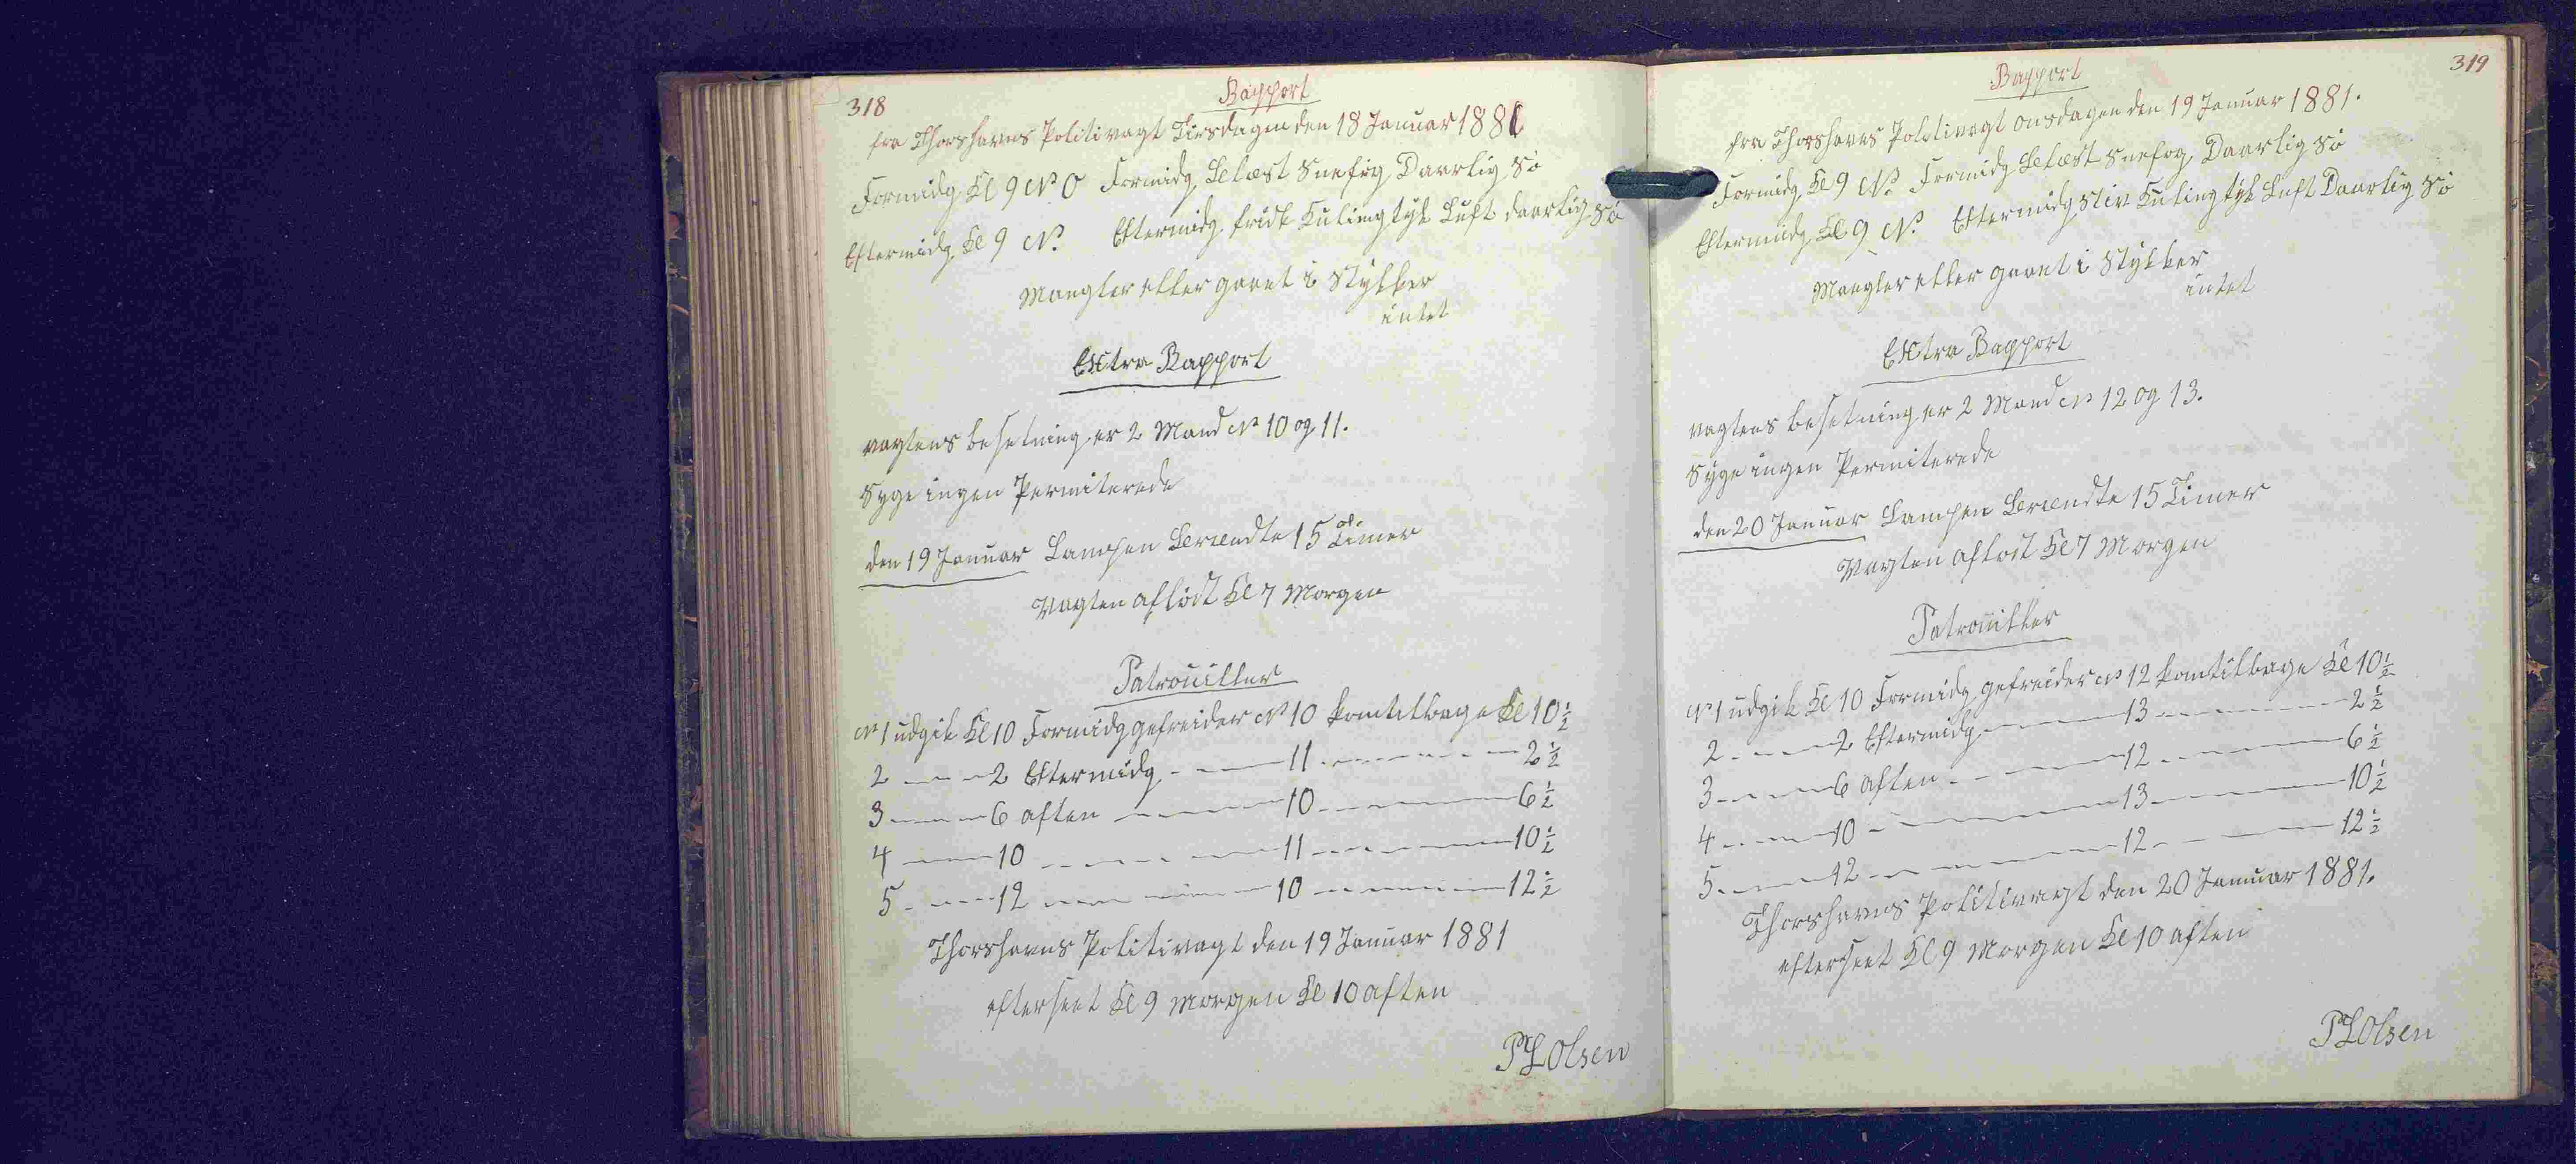 318
Rapport
fra Thorshavns Politivagt Tirsdagen den 18 Januar 1881
Formidg Kl 9 N O Formidg Blæst Snefog Daarlig Sö
Eftermidg Kl 9 N. Eftermidg frisk Kuling tyk Luft daarlig Sö
Mangler eller gaaet i Stykker
intet
Extra Rapport
vagtens besetning er 2 Mand No 10 og 11.
Syge ingen Permiterede
den 19 Januar Lampen Brændte 15 Timer
Vagten aflöst Kl 7 Morgen
Patrouiller
No 1 udgik Kl 10 Formidg gefreider No 10 kom tilbage Kl 10 1/2
2 — — 2 Eftermidg — — 11 — — 2 1/2
3 — — 6 aften — — 10 — — 6 1/2
4 — — 10 — — 11 — — 10 1/2
5 — — 12 — — 10 — — 12 1/2
Thorshavns Politivagt den 19 Januar 1881
efterseet Kl 9 Morgen Kl 10 aften
P L Olsen
319
Rapport
fra Thorshavns Politivagt Onsdagen den 19 Januar 1881.
Formidg Kl 9 N. Formidg Blæst Snefog Daarlig Sö
Eftermidg Kl 9 N. Eftermidg Stiv Kuling tyk Luft Daarlig Sö
Mangler eller gaaet i Stykker
intet
Extra Rapport
vagtens besetning er 2 Mand No 12 og 13.
Syge ingen Permiterede
den 20 Januar Lampen Brændte 15 Timer
Vagten aflöst Kl 7 Morgen
Patrouiller
No 1 udgik Kl 10 Formidg gefreider No 12 kom tilbage Kl 10 1/2
2 — — 2 Eftermidg — — 13 — — 2 1/2
3 — — 6 aften — — 12 — — 6 1/2
4 — — 10 — — 13 — — 10 1/2
5 — — 12 — — 12 — — 12 1/2
Thorshavns Politivagt den 20 Januar 1881.
efterseet Kl 9 Morgen Kl 10 aften
P L Olsen